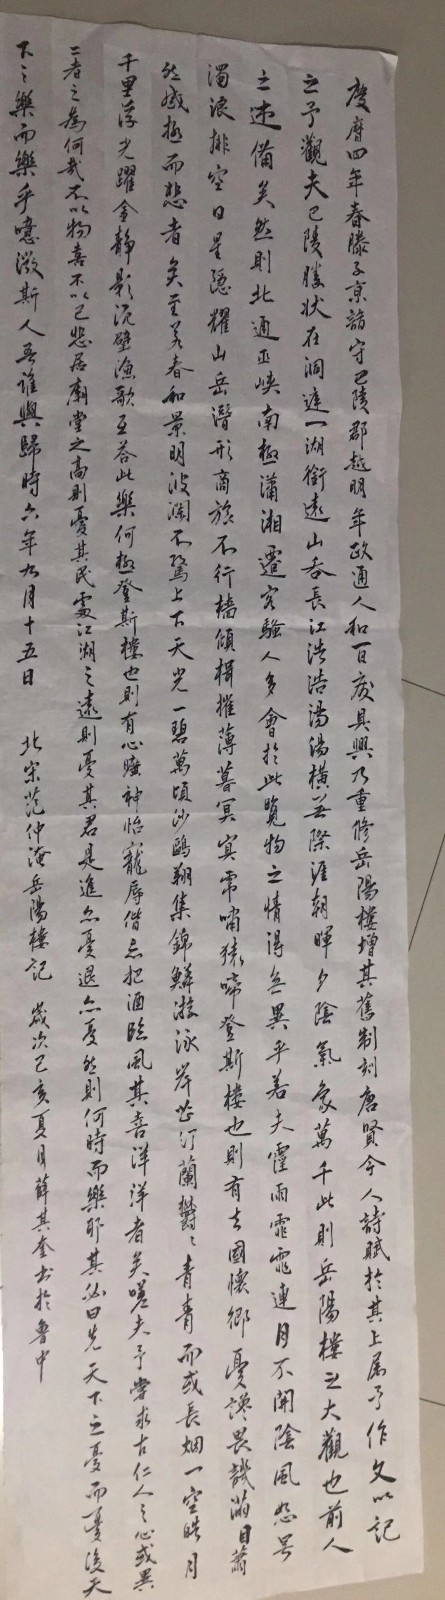 慶曆四年春滕子京謫守巴陵郡越明年政通人和百廢具興乃重修岳陽樓增其舊制刻唐賢今人詩賦於其上属予作文以記
之予觀夫巴陵勝狀在洞庭一湖銜遠山吞長江浩浩湯湯橫無際涯朝暉夕陰氣象萬千此則岳陽樓之大觀也前人
之述備矣然則北通巫峽南極瀟湘遷客騷人多會於此覽物之情得無異乎若夫霪雨霏霏連月不開陰風怒号
濁浪排空日星隱耀山岳潛形商旅不行檣傾楫摧薄暮冥冥虎嘯猿啼登斯樓也則有去國懷鄉憂讒畏譏滿目蕭
然感極而悲者矣至若春和景明波瀾不驚上下天光一碧萬頃沙鷗翔集錦鱗游泳岸芷汀蘭鬱鬱青青而或長烟一空皓月
千里浮光躍金静影沉璧漁歌互答此樂何極登斯樓也則有心曠神怡寵辱偕忘把酒臨風其喜洋洋者矣嗟夫予嘗求古仁人之心或異
二者之為何哉不以物喜不以己悲居廟堂之高則憂其民處江湖之遠則憂其君是進亦憂退亦憂然則何時而樂耶其必曰先天下之憂而憂後天
下之樂而樂乎噫微斯人吾誰與歸時六年九月十五日 北宋范仲淹岳陽樓記 歲次己亥夏月薛其奎书於魯中